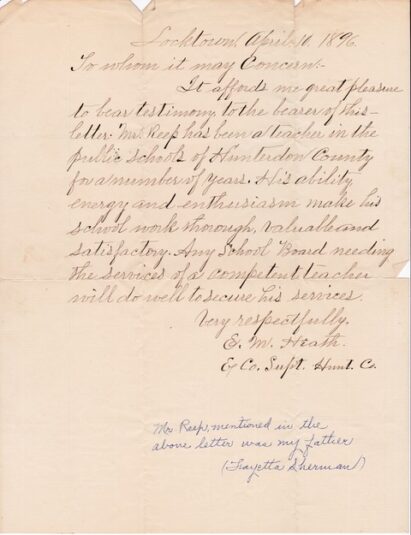 Locktown, April 10, 1896.
To whom it may Concern:-
It affords me great pleasure
to bear testimony to the bearer of this
letter. Mr. Reep has been a teacher in the
public schools of Hunterdon County
for a number of years. His ability,
energy and enthusiasm make his
school work thorough, valuable and
satisfactory. Any School Board needing
the services of a competent teacher
will do well to secure his services.
Very respectfully,
E. M. Heath.
Co. Supt. Hunt. Co.
Mr Reep, mentioned in the
above letter was my father
(Fayetta Sherman)